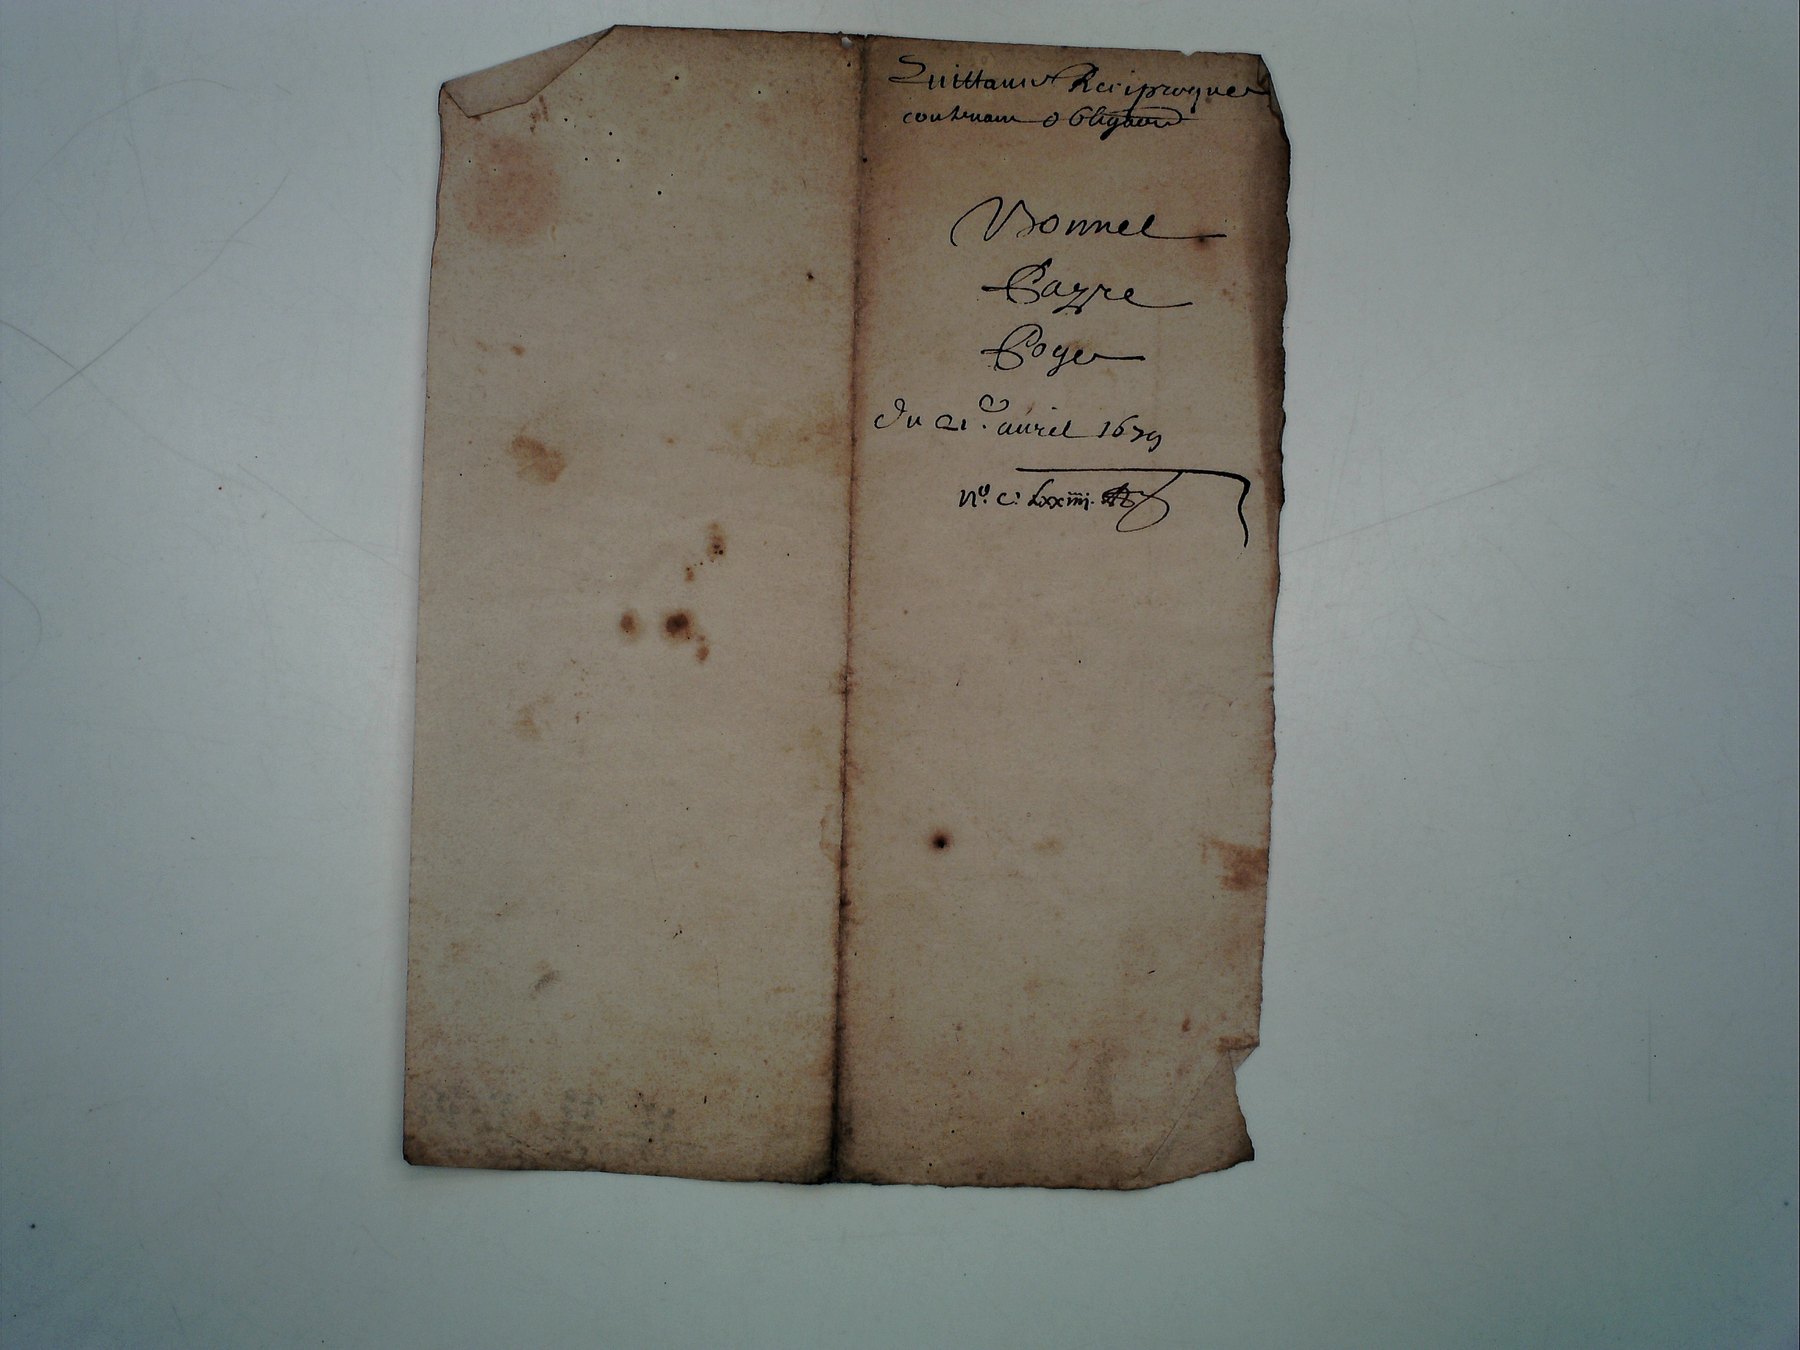 Quittances Reciproques
contenant obligaon
Bonnel
Payre
Boyer
du 21e. auril 1679
No. C. Lxxiiij.